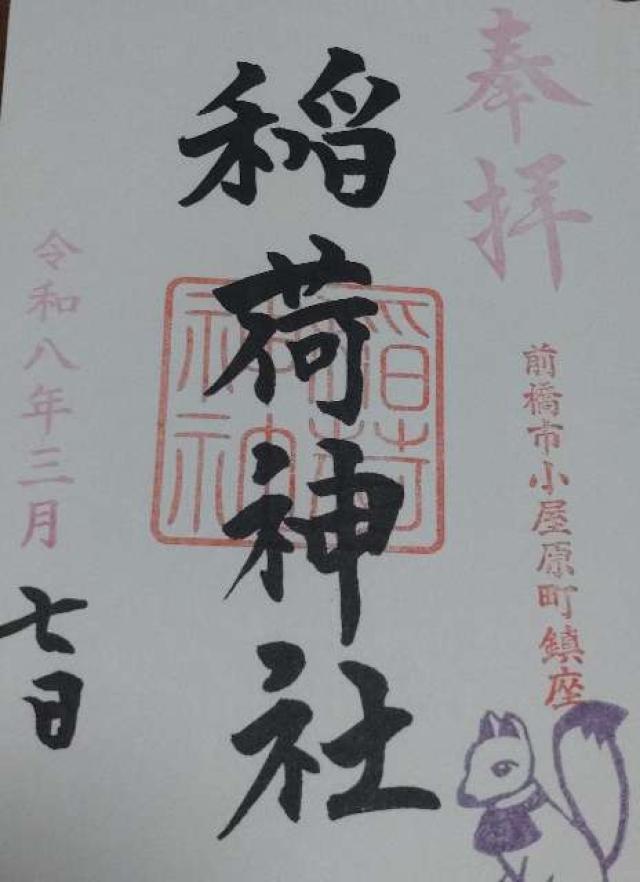 奉拝
前橋市小屋原町鎮座
稲荷神社
稲荷神社
令和八年三月
七日